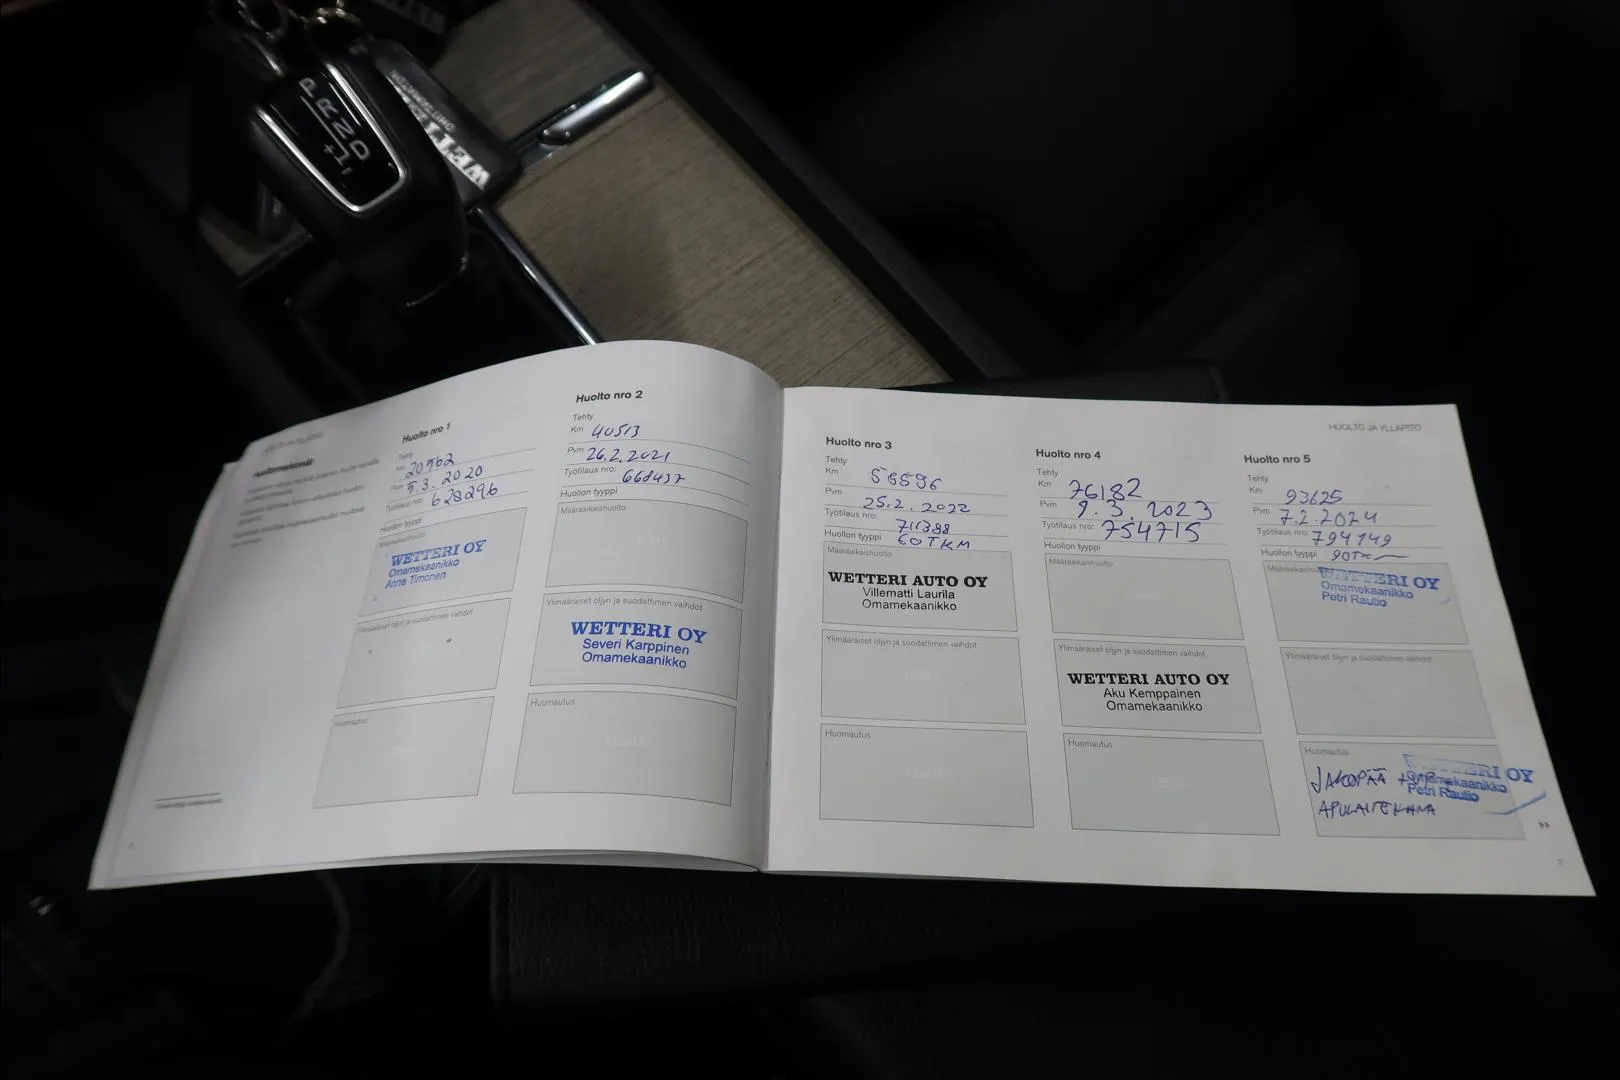 P
R
N
D
+
-
WETTERI
Huolto nro 1
Tehty
Km 20962
Pvm 5.3.2020
Työtilaus nro: 628296
Huollon tyyppi
Määräaikaishuolto
WETTERI OY
Omamekaanikko
Anne Timonen
Ylimääräiset öljyn ja suodattimen vaihdot
Huomautus
Huolto nro 2
Tehty
Km 40513
Pvm 26.2.2021
Työtilaus nro: 668437
Huollon tyyppi
Määräaikaishuolto
Ylimääräiset öljyn ja suodattimen vaihdot
WETTERI OY
Severi Karppinen
Omamekaanikko
Huomautus
HUOLTO JA YLLÄPITO
Huolto nro 3
Tehty
Km 58596
Pvm 25.2.2022
Työtilaus nro: 711388
Huollon tyyppi 60TKM
Määräaikaishuolto
WETTERI AUTO OY
Villematti Laurila
Omamekaanikko
Ylimääräiset öljyn ja suodattimen vaihdot
Huomautus
Huolto nro 4
Tehty
Km 76182
Pvm 9.3.2023
Työtilaus nro: 754715
Huollon tyyppi
Määräaikaishuolto
Ylimääräiset öljyn ja suodattimen vaihdot
WETTERI AUTO OY
Aku Kemppainen
Omamekaanikko
Huomautus
Huolto nro 5
Tehty
Km 93625
Pvm 7.2.2024
Työtilaus nro: 794149
Huollon tyyppi 90TK
Määräaikaishuolto
WETTERI OY
Omamekaanikko
Petri Rautio
Ylimääräiset öljyn ja suodattimen vaihdot
Huomautus
WETTERI OY
Omamekaanikko
Petri Rautio
JAKOPÄÄ
APULAITEHIHNA